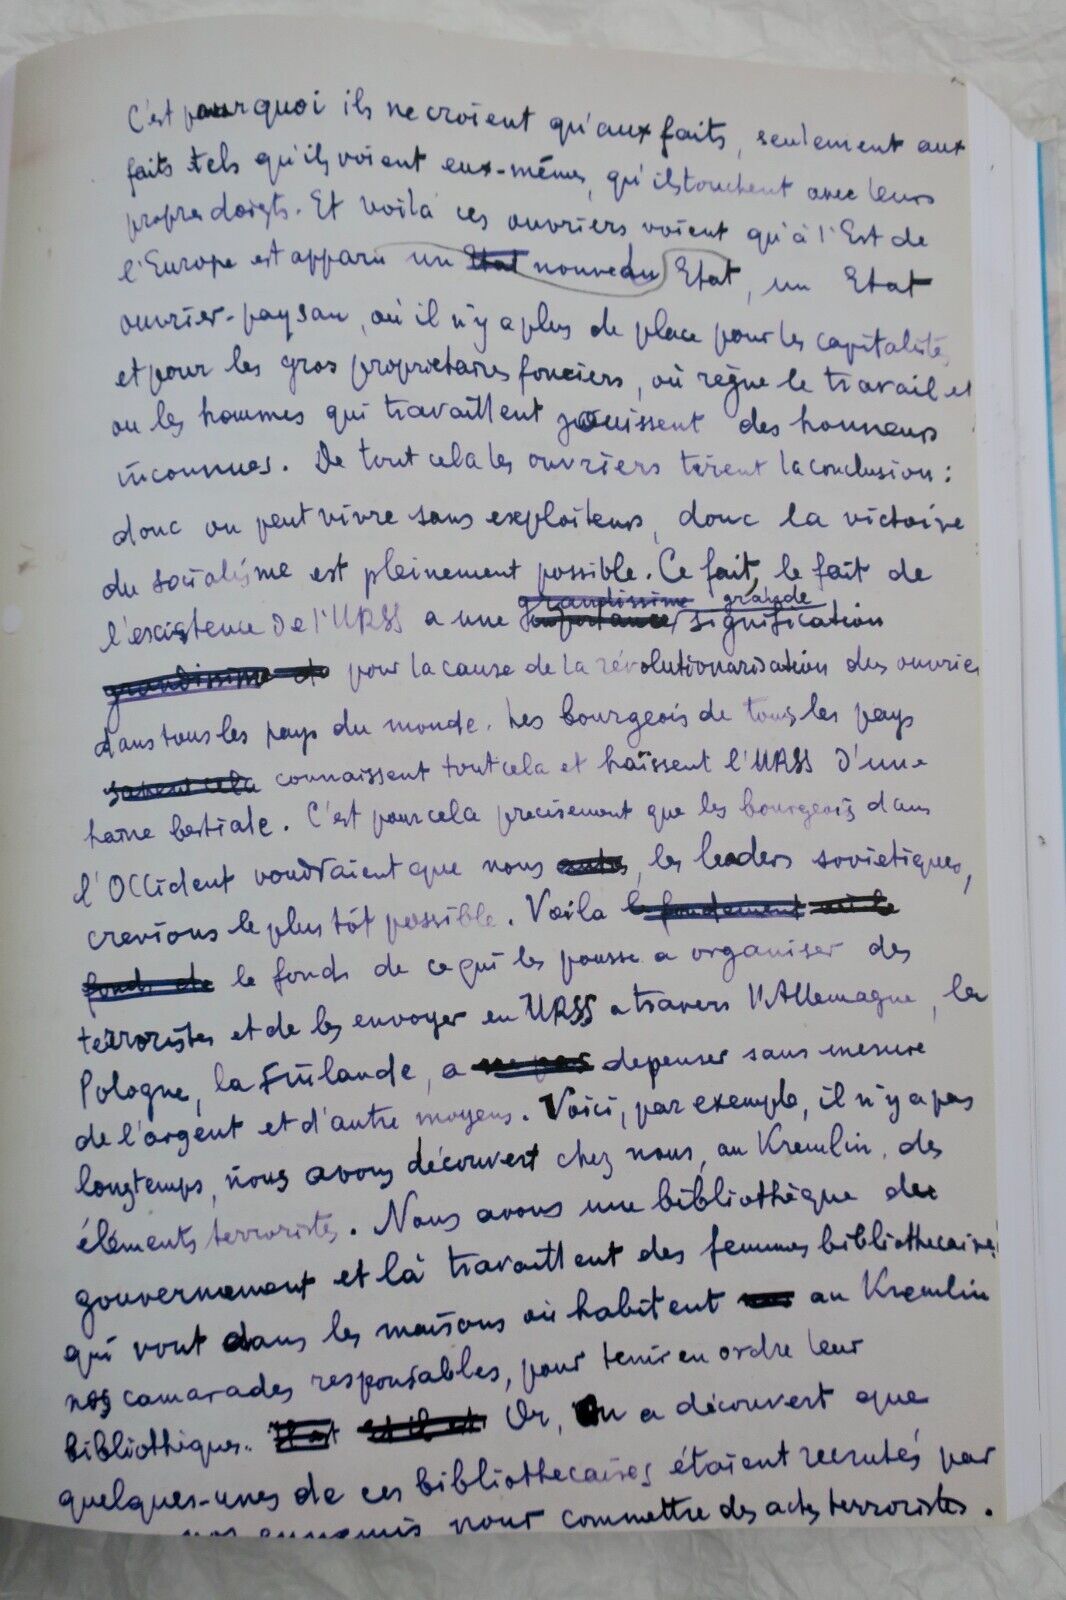 C'est pourquoi ils ne croient qu'aux faits, seulement aux
faits tels qu'ils voient eux-mêmes, qu'ils touchent avec leurs
propres doigts. Et voilà ces ouvriers voient qu'à l'Est de
l'Europe est apparu un Etat nouveau Etat, un Etat
ouvrier-paysan, où il n'y a plus de place pour les capitalistes
et pour les gros proprietaires fonciers, où règne le travail et
ou les hommes qui travaillent jouissent des honneurs
inconnues. De tout cela les ouvriers tirent la conclusion :
donc on peut vivre sans exploiteurs, donc la victoire
du socialisme est pleinement possible. Ce fait, le fait de
grandissime grande
l'existence de l'URSS a une importance, signification
grandissime de pour la cause de la révolutionarisation des ouvrier
dans tous les pays du monde. Les bourgeois de tous les pays
savent cela connaissent tout cela et haïssent l'URSS d'une
haine bestiale. C'est pour cela precisement que les bourgeois dans
l'Occident voudraient que nous , les leaders soviétiques,
crevions le plus tôt possible. Voila le fondement
fonds de le fonds de ce qui les pousse a organiser des
terroristes et de les envoyer en URSS a travers l'Allemagne, la
Pologne, la Finlande, a ne pas depenser sans mesure
de l'argent et d'autre moyens. Voici, par exemple, il n'y a pas
longtemps, nous avons découvert chez nous, au Kremlin, des
éléments terroristes. Nous avons une bibliothèque de
gouvernement et là travaillent des femmes bibliothecaires
qui vont dans les maisons où habitent au Kremlin
nos camarades responsables, pour tenir en ordre leur
bibliothèques. Il et il est Or, on a découvert que
quelques-unes de ces bibliothecaires étaient recrutés par
nos ennemis pour commettre des actes terroristes.